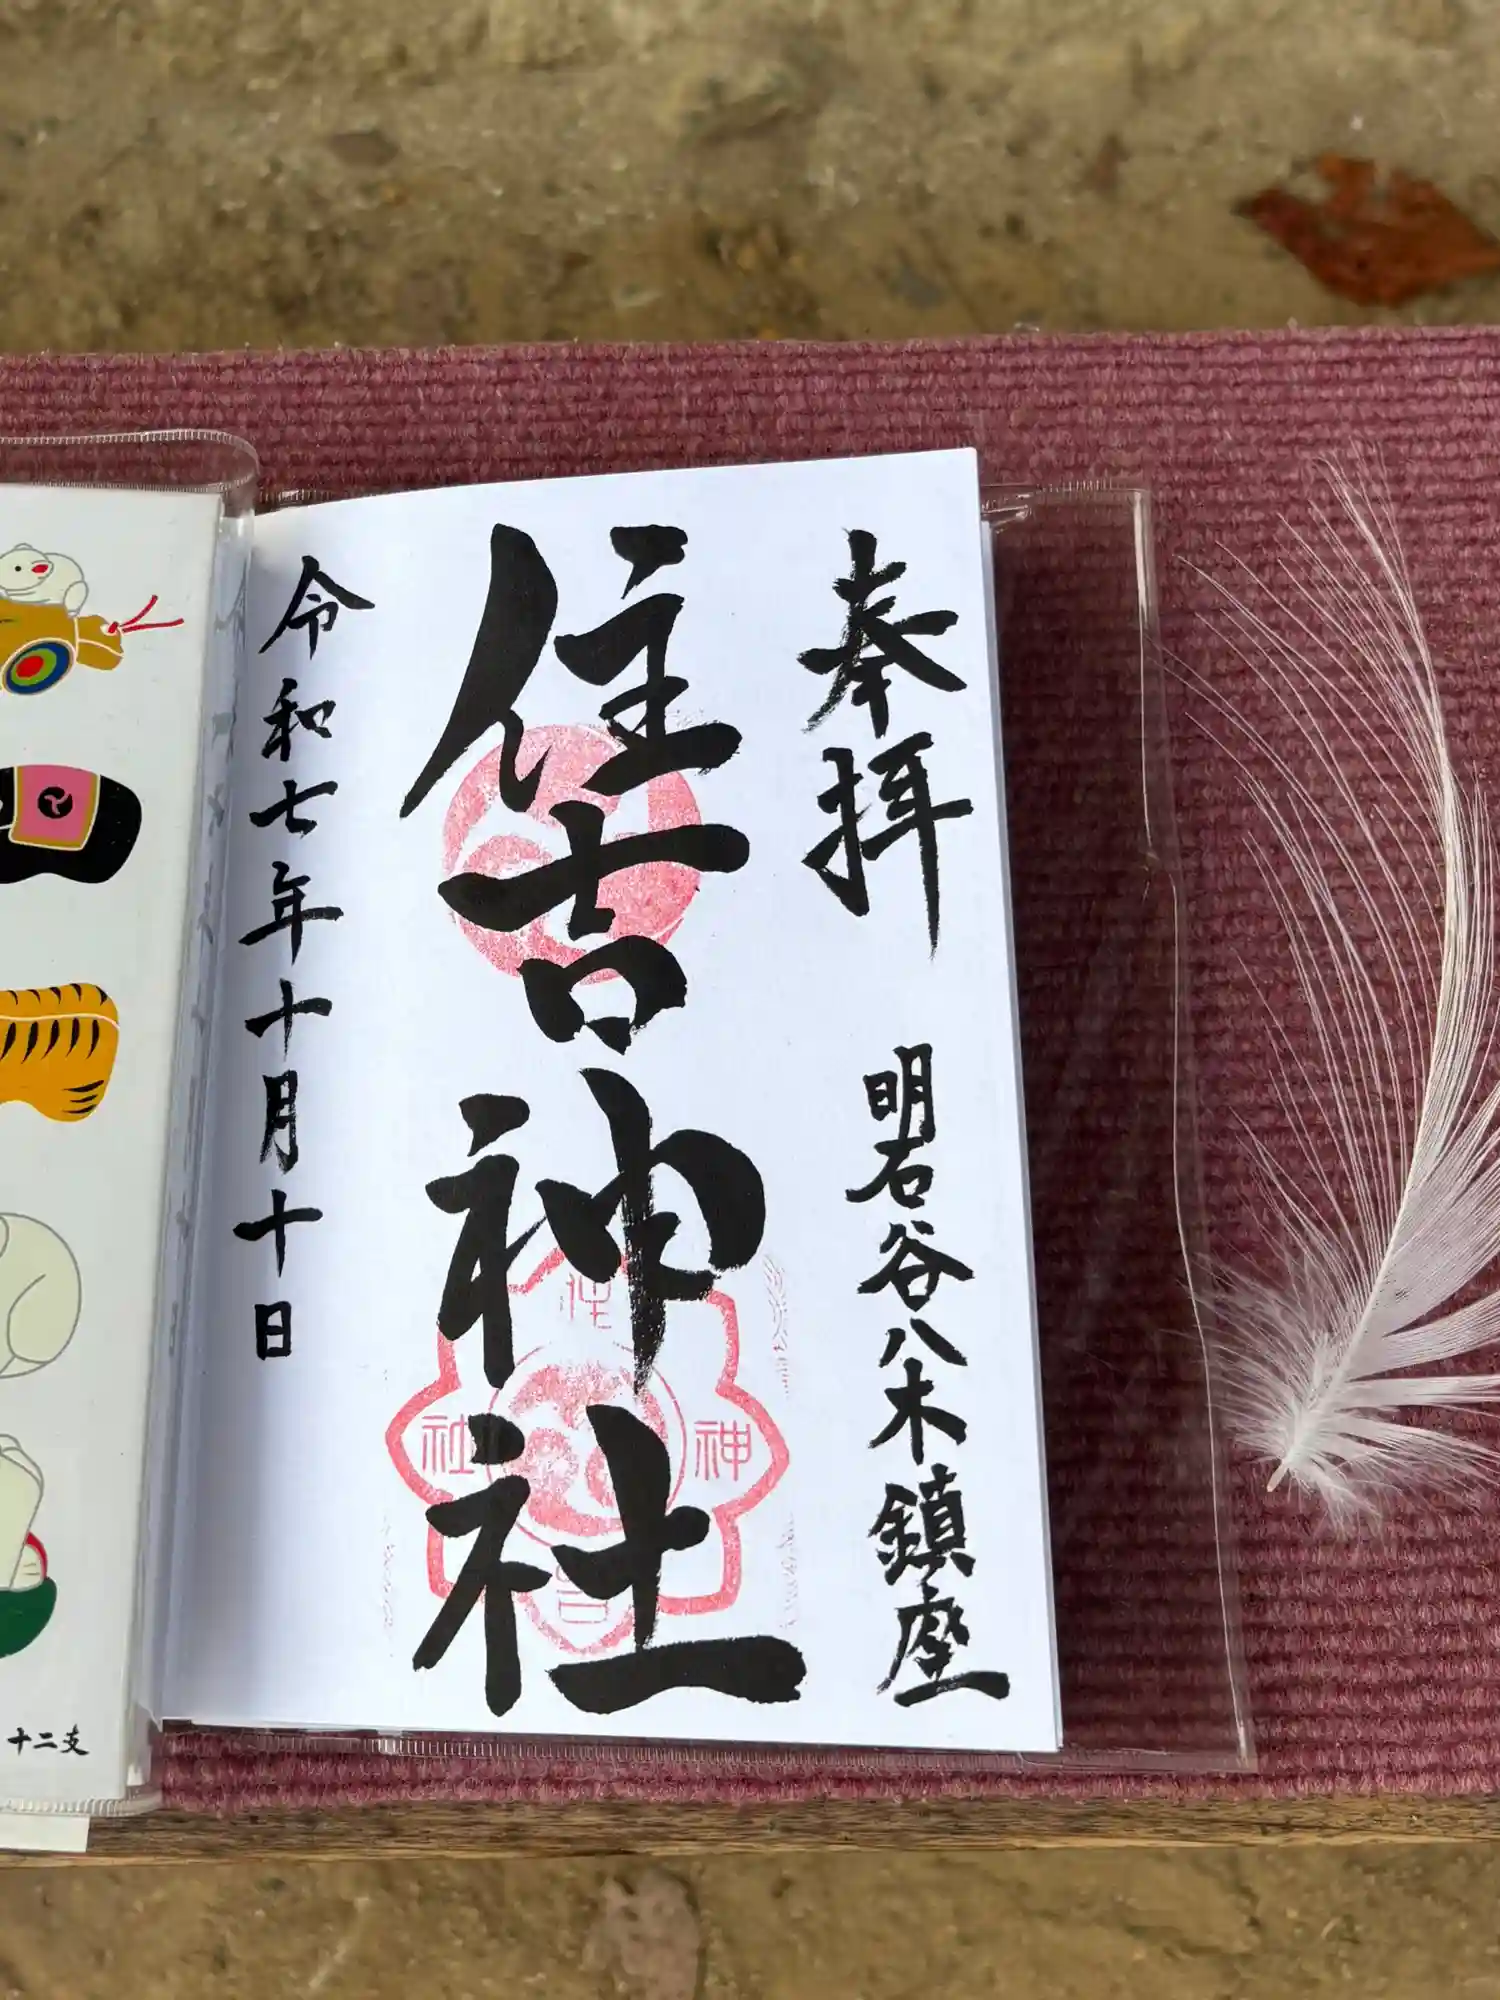 奉拝 明石谷八木鎮座
住吉神社
令和七年十月十日
住
神
社
吉
十二支